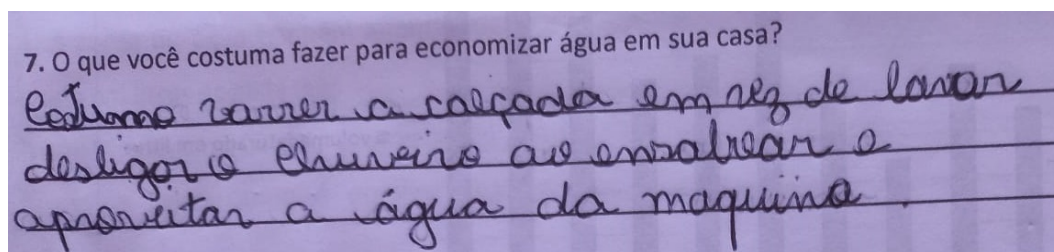 7. O que você costuma fazer para economizar água em sua casa?
Costumo varrer a calçada em vez de lavar
desligar o chuveiro ao ensaboar e
aproveitar a água da maquina.